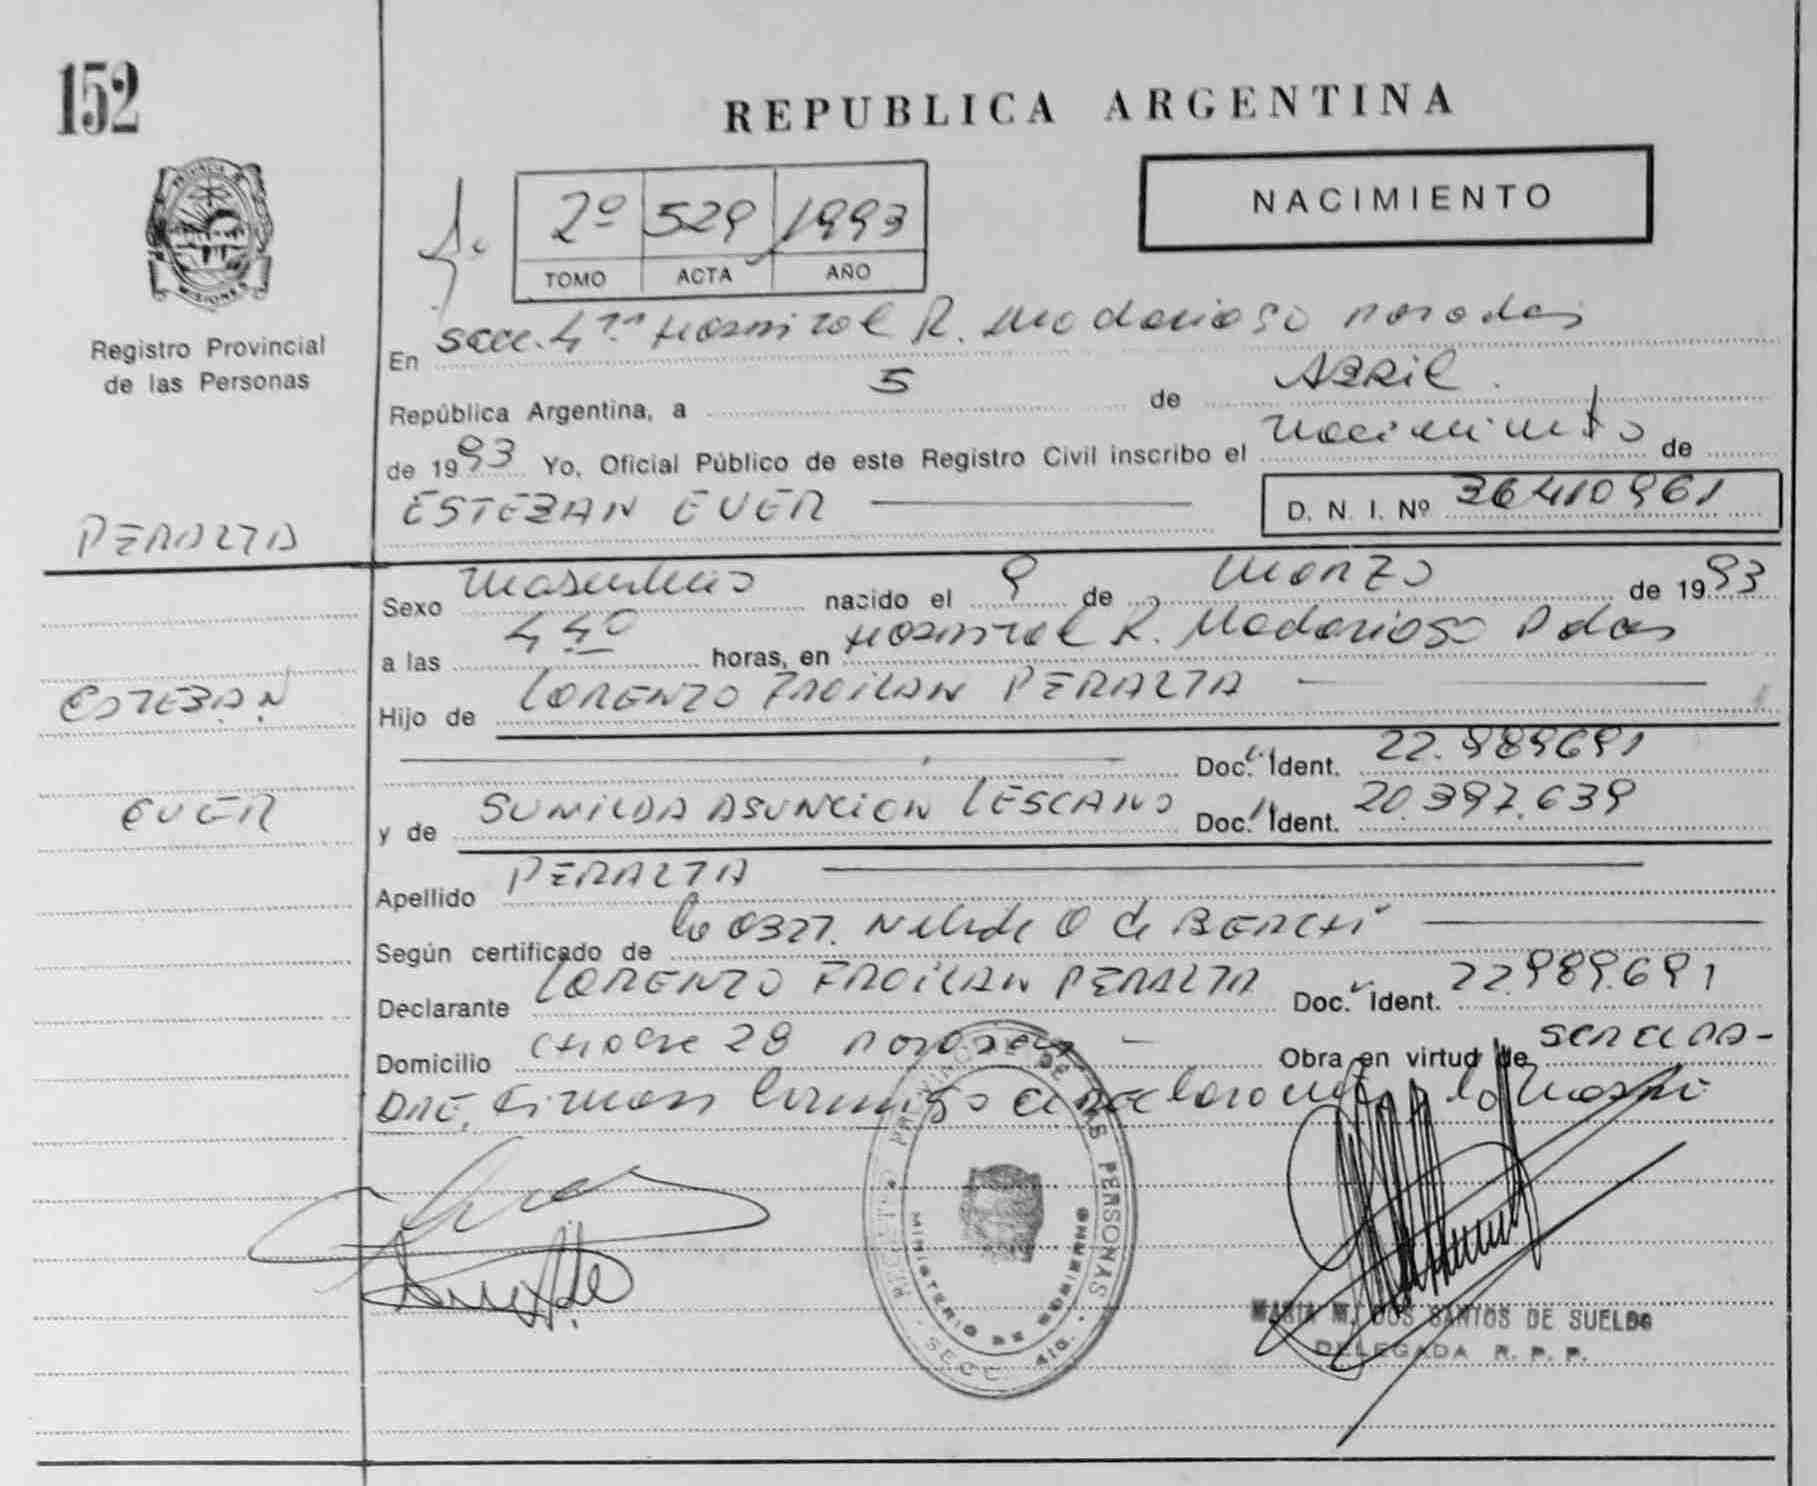 152
REPUBLICA ARGENTINA
NACIMIENTO
2º 529 1993
TOMO ACTA AÑO
PROVINCIA DE
MISIONES
Registro Provincial
de las Personas
En Secc. 4ta Hospital R. Madariaga Posadas
República Argentina, a 5 de ABRIL
de 1993 Yo, Oficial Público de este Registro Civil inscribo el Nacimiento de
ESTEBAN EVER
D. N. I. Nº 36410961
PERALTA
Sexo Masculino nacido el 9 de MARZO de 1993
a las 4 40 horas, en Hospital R. Madariaga Pdas
ESTEBAN
Hijo de LORENZO FROILAN PERALTA
Doc. Ident. 22.989691
EVER
y de SUNILDA ASUNCION LESCANO Doc. Ident. 20.397.639
Apellido PERALTA
Según certificado de la OBST. Nelida O de
Declarante LORENZO FROILAN PERALTA Doc. Ident. 22.989.691
Domicilio 28 Posadas Obra en virtud de SER EL PA-
DRE.
REGISTRO PROVINCIAL DE LAS PERSONAS
MINISTERIO DE GOBIERNO
SECC. 4ta.
MARIA M. DOS SANTOS DE SUELDO
DELEGADA R. P. P.